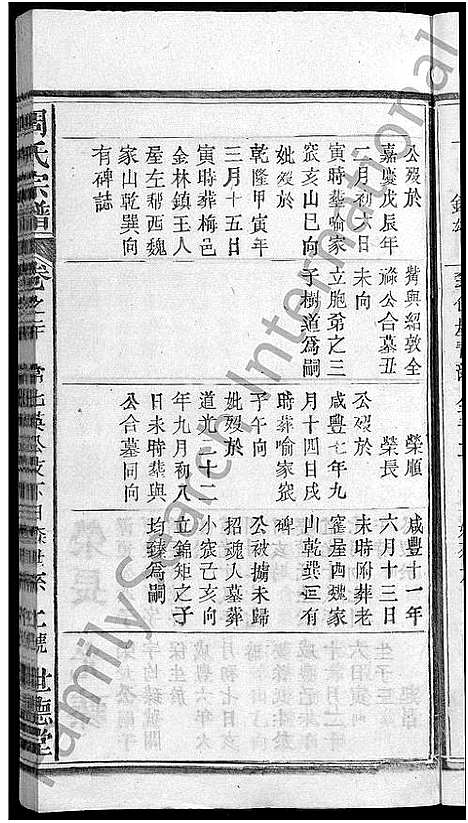 公歿於
嘉慶戊辰年
二月初六日
寅時葬喻家
窊亥山巳向
妣歿於
乾隆甲寅年
三月十五日
寅時葬梅邑
金林鎮王人
屋左㨝西魏
家山乾巽向
有碑誌
葬與紹敦全
祿公合墓丑
未向
立胞弟之三
子樹道爲嗣
榮順
榮長
公歿於
咸豐七年九
月十四日戌
時葬喻家窊
子午向
妣歿於
道光二十二
年九月初八
日未時葬與
公合墓同向
咸豐十一年
六月十三日
未時附葬老
窰屋西魏家
山乾巽向有
碑
公被擄未歸
招魂入墓葬
小窊乙亥向
立錦矩之子
均臻爲嗣
周氏宗譜
卷之二十
世德堂
FamilySearch International